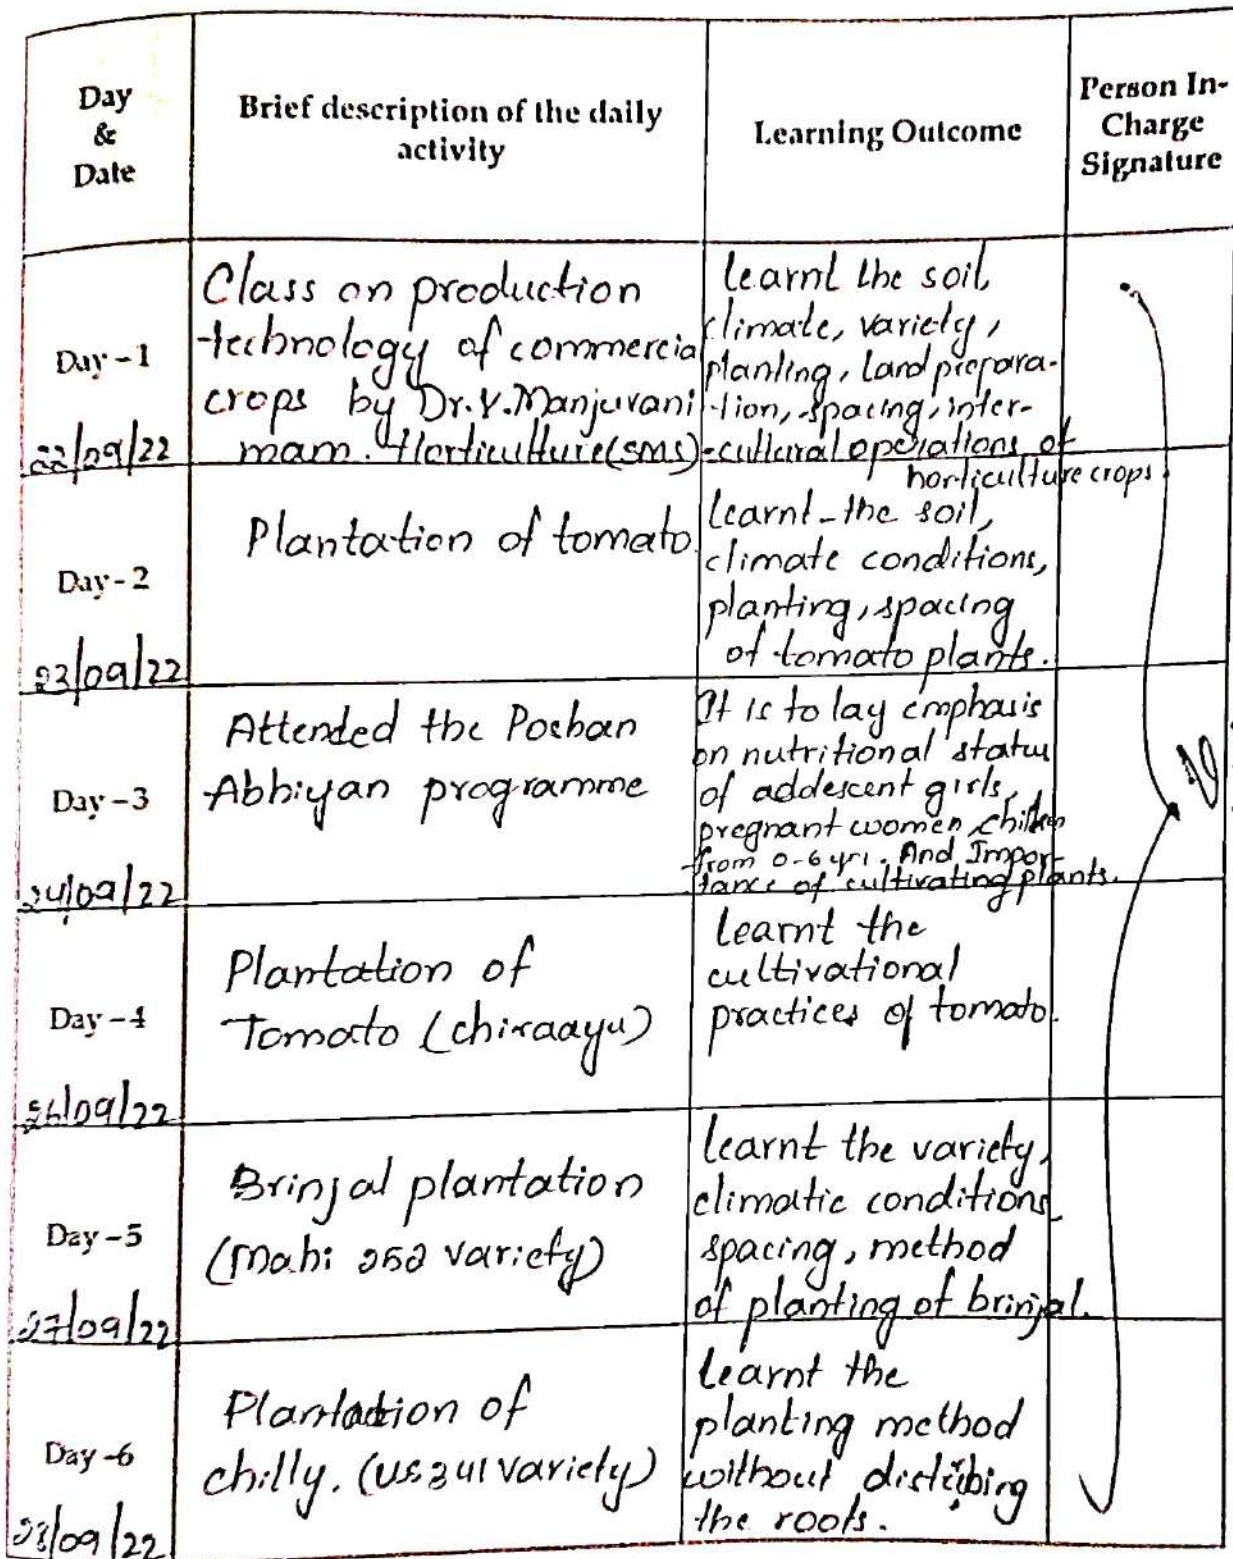 Day
&
Date
Brief description of the daily
activity
Learning Outcome
Person In-
Charge
Signature
Day - 1
22/09/22
Class on production
technology of commercia
crops by Dr. Y. Manjuvani
mam. Horticulture (SMS)
learnt the soil,
climate, variety,
planting, land prepara-
-tion, spacing, inter-
-cultural operations of
horticulture crops.
Day - 2
23/09/22
Plantation of tomato.
learnt the soil,
climate conditions,
planting, spacing
of tomato plants.
Day - 3
24/09/22
Attended the Poshan
Abhiyan programme
It is to lay emphasis
on nutritional status
of addescent girls,
pregnant women,
from 0-6 yrs. And Impor-
tance of cultivating plants.
Day - 4
26/09/22
Plantation of
Tomato (chiraayu)
learnt the
cultivational
practices of tomato.
Day - 5
27/09/22
Brinjal plantation
(Mahi 252 variety)
learnt the variety,
climatic conditions
spacing, method
of planting of brinjal.
Day - 6
28/09/22
Plantation of
chilly. (US 341 variety)
learnt the
planting method
without
the roots.